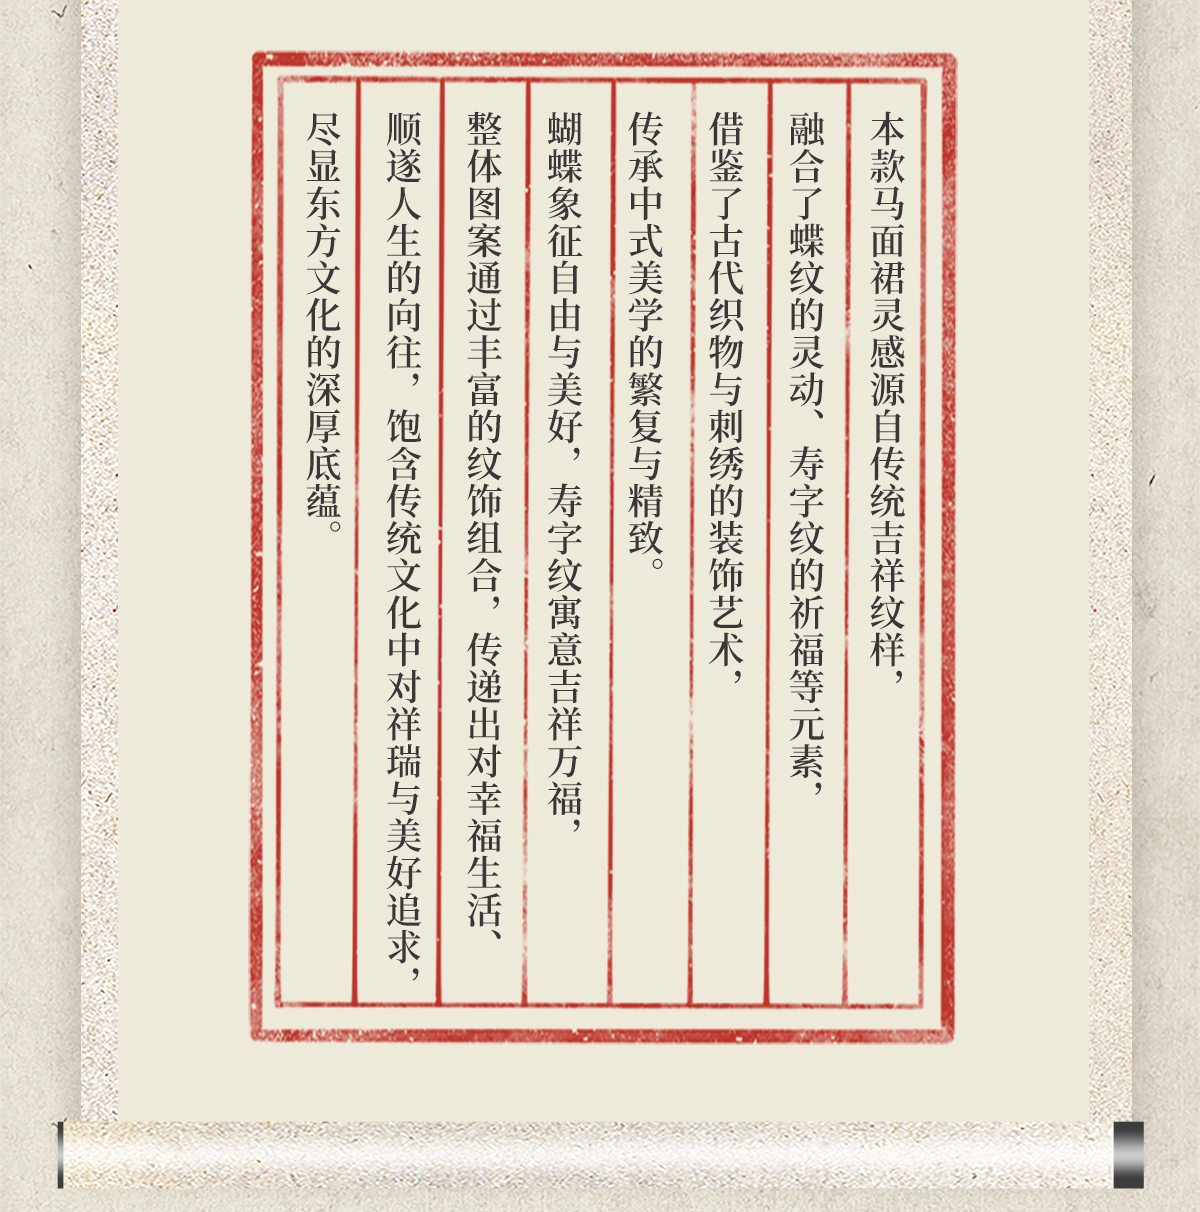 本款马面裙灵感源自传统吉祥纹样，
融合了蝶纹的灵动、寿字纹的祈福等元素，
借鉴了古代织物与刺绣的装饰艺术，
传承中式美学的繁复与精致。
蝴蝶象征自由与美好，寿字纹寓意吉祥万福，
整体图案通过丰富的纹饰组合，传递出对幸福生活、
顺遂人生的向往，饱含传统文化中对祥瑞与美好追求，
尽显东方文化的深厚底蕴。